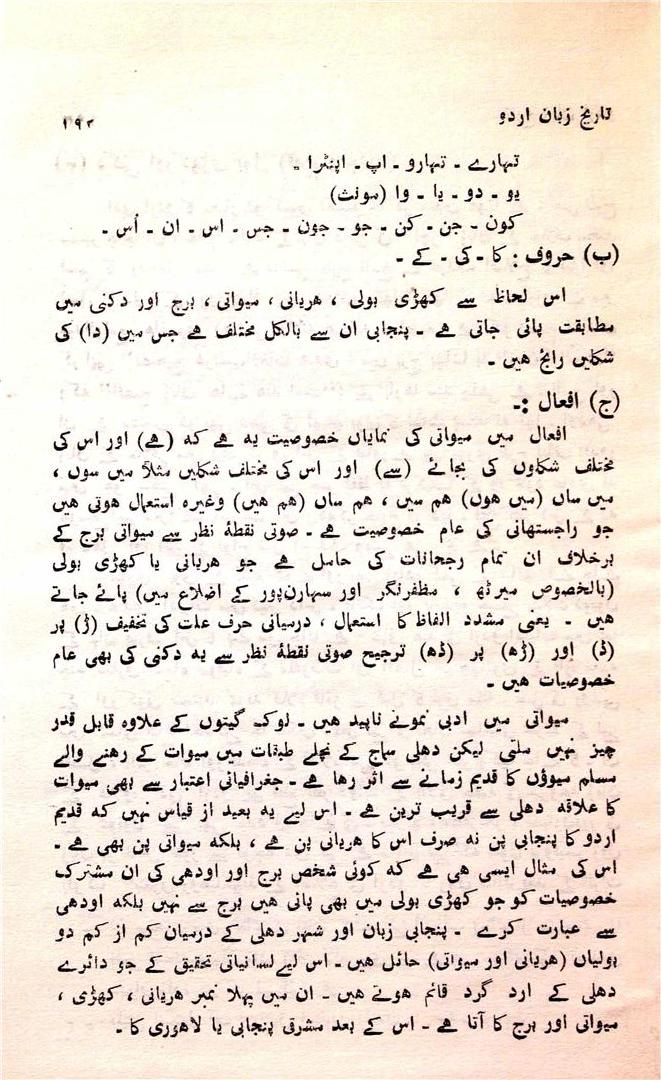 تاریخ زبان اردو
۱۹۲
تہارے ۔ تہارو ۔ اپ ۔ اپنڑا ۔
یو ۔ دو ۔ یا ۔ وا (مونث)
کون ۔ جن ۔ کن ۔ جو ۔ جون ۔ جس ۔ اس ۔ ان ۔ اُس ۔
(ب) حروف : کا ۔ کی ۔ کے ۔
اس لحاظ سے کھڑی بولی ، ھریانی ، میواتی ، برج اور دکنی میں
مطابقت پائی جاتی ہے ۔ پنجابی ان سے بالکل مختلف ہے جس میں (دا) کی
شکلیں رائج ھیں ۔
(ج) افعال :۔
افعال میں میواتی کی نمایاں خصوصیت یہ ہے کہ (ہے) اور اس کی
مختلف شکلوں کی بجائے (سے) اور اس کی مختلف شکلیں مثلاً میں سوں ،
میں ساں (میں ھوں) ھم میں ، ھم ساں (ھم ھیں) وغیرہ استعمال ھوتی ھیں
جو راجستھانی کی عام خصوصیت ہے ۔ صوتی نقطۂ نظر سے میواتی برج کے
برخلاف ان تمام رجحانات کی حامل ہے جو ھریانی یا کھڑی بولی
(بالخصوص میرٹھ ، مظفرنگر اور سہارن‌پور کے اضلاع میں) پائے جاتے
ھیں ۔ یعنی مشدد الفاظ کا استعمال ، درمیانی حرف علت کی تخفیف (ڑ) پر
(ڈ) اور (ڑھ) پر (ڈھ) ترجیح صوتی نقطۂ نظر سے یہ دکنی کی بھی عام
خصوصیات ھیں ۔
میواتی میں ادبی نمونے ناپید ھیں ۔ لوک گیتوں کے علاوہ قابل قدر
چیز نہیں ملتی لیکن دھلی سماج کے نچلے طبقات میں میوات کے رھنے والے
مسلم میوؤں کا قدیم زمانے سے اثر رھا ہے ۔ جغرافیائی اعتبار سے بھی میوات
کا علاقہ دھلی سے قریب ترین ہے ۔ اس لیے یہ بعید از قیاس نہیں کہ قدیم
اردو کا پنجابی پن نہ صرف اس کا ھریانی پن ہے ، بلکہ میواتی پن بھی ہے ۔
اس کی مثال ایسی ھی ہے کہ کوئی شخص برج اور اودھی کی ان مشترک
خصوصیات کو جو کھڑی بولی میں بھی پانی ھیں برج سے نہیں بلکہ اودھی
سے عبارت کرے ۔ پنجابی زبان اور شہر دھلی کے درمیان کم از کم دو
بولیاں (ھریانی اور میواتی) حائل ھیں ۔ اس لیے لسانیاتی تحقیق کے جو دائرے
دھلی کے ارد گرد قائم ھوتے ھیں ۔ ان میں پہلا نمبر ھریانی ، کھڑی ،
میواتی اور برج کا آتا ہے ۔ اس کے بعد مشرقی پنجابی یا لاھوری کا ۔